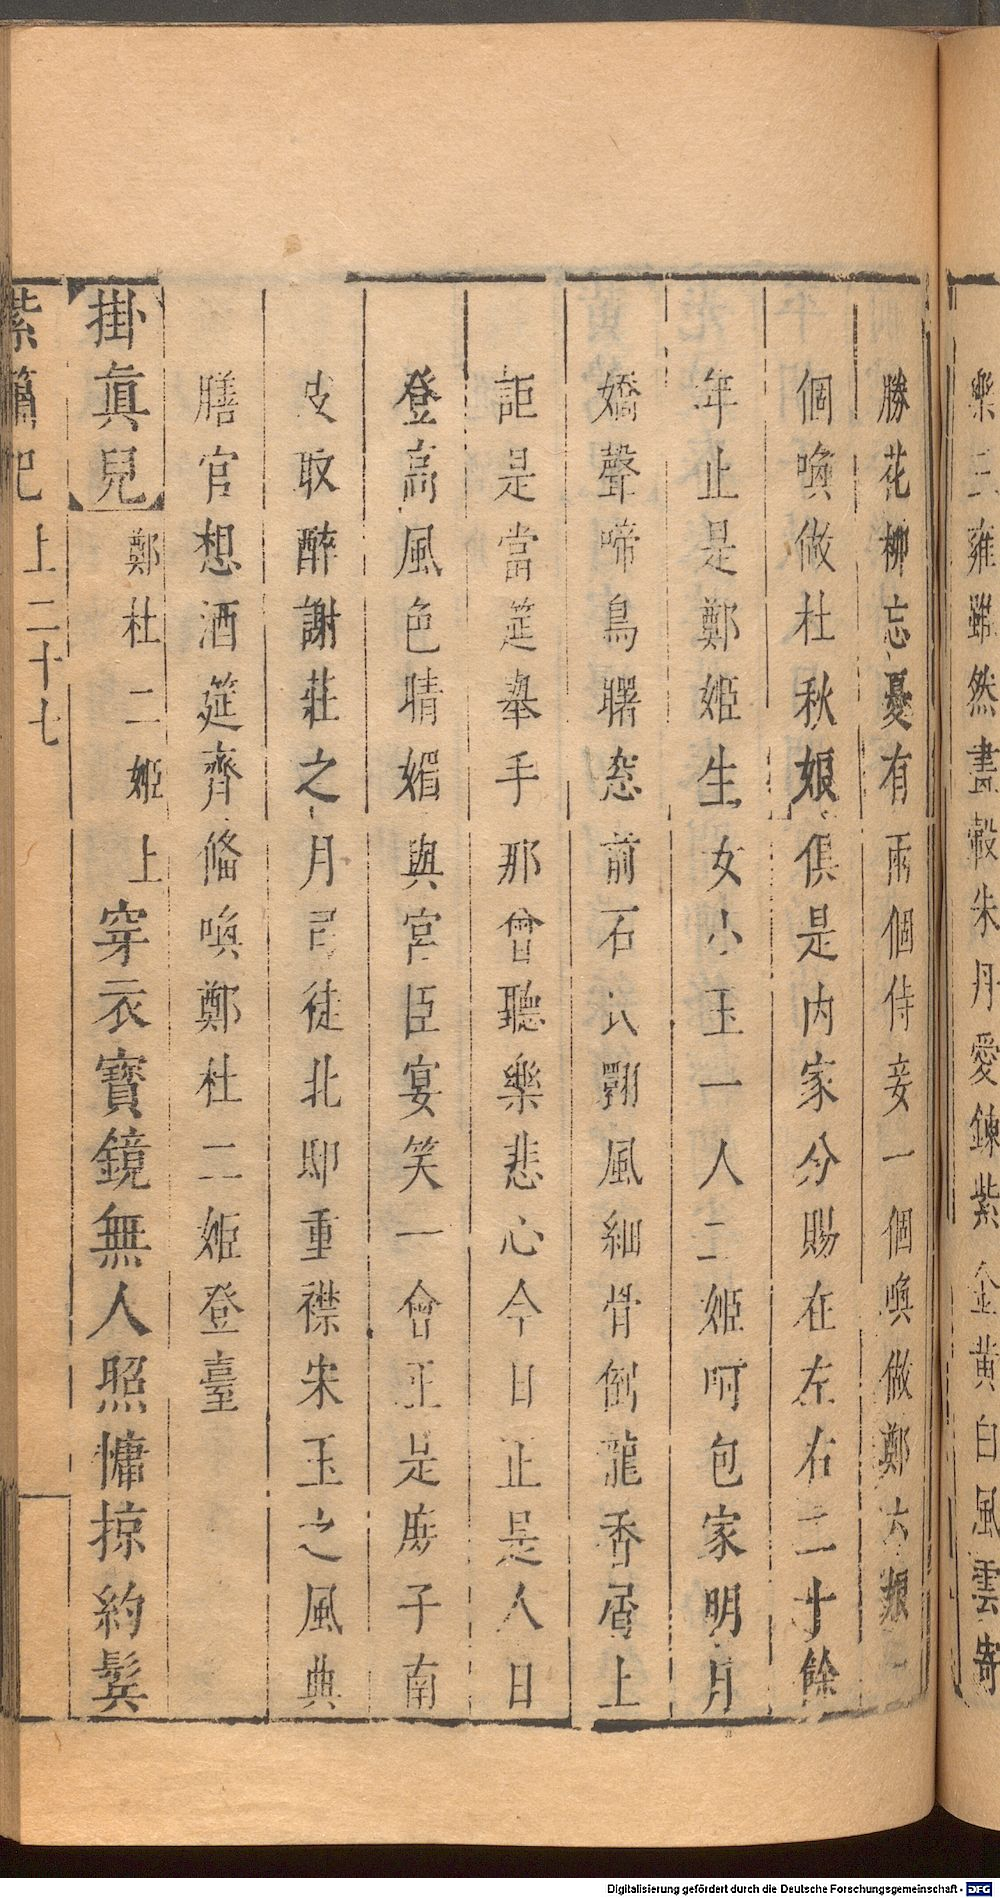 樂三雍雖然畫轂朱丹愛鍊紫金黃白風雲寄
勝花柳忘憂有兩個侍妾一個喚做鄭六娘一
個喚做杜秋娘俱是内家分賜在左右二十餘
年止是鄭姬生女小玉一人二姬呵包家明月
嬌聲啼鳥曙窓前石氏翾風細骨倒龍香屑上
詎是當筵舉手那曾聽樂悲心今日正是人日
登高風色晴媚與宮臣宴笑一會正是庶子南
皮取醉謝莊之月司徒北邸重襟宋玉之風典
膳官想酒筵齊備喚鄭杜二姬登臺
掛眞兒 鄭杜二姬上 穿衣寶鏡無人照慵掠約鬓
紫簫記 上二十七
Digitalisierung gefördert durch die Deutsche Forschungsgemeinschaft - DFG